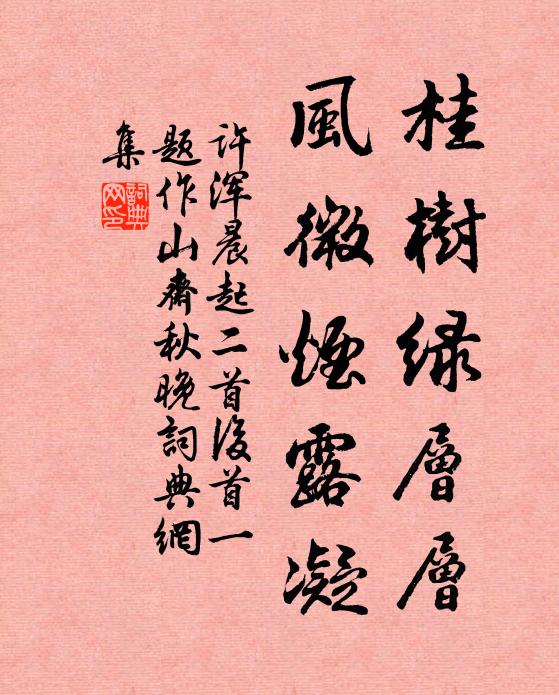 桂樹緑層層
風微煙露凝
許渾晨起二首後首一
題作山齋秋晚詞典網
集
詞典
网印